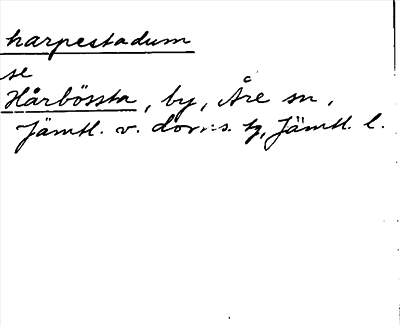 harpestadum
se
Hårbössta, by, Åre sn,
Jämtl. v. doms. tg, Jämtl. l.